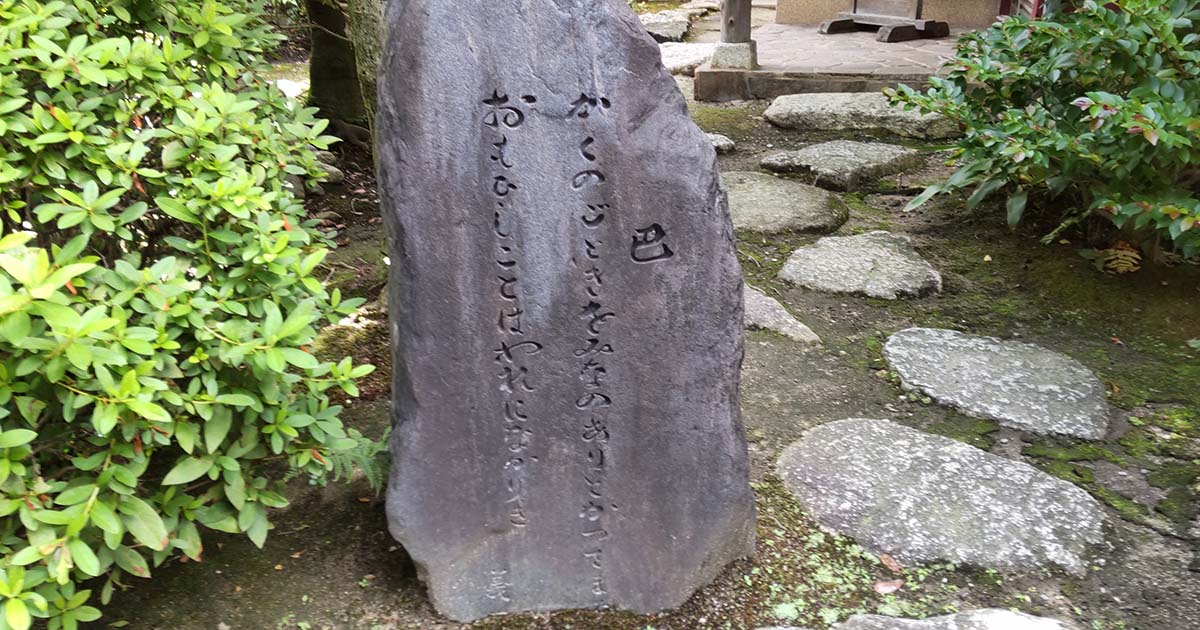 巴
かくのごときをみなのありとかつてま
おもひしことはわれになかりき